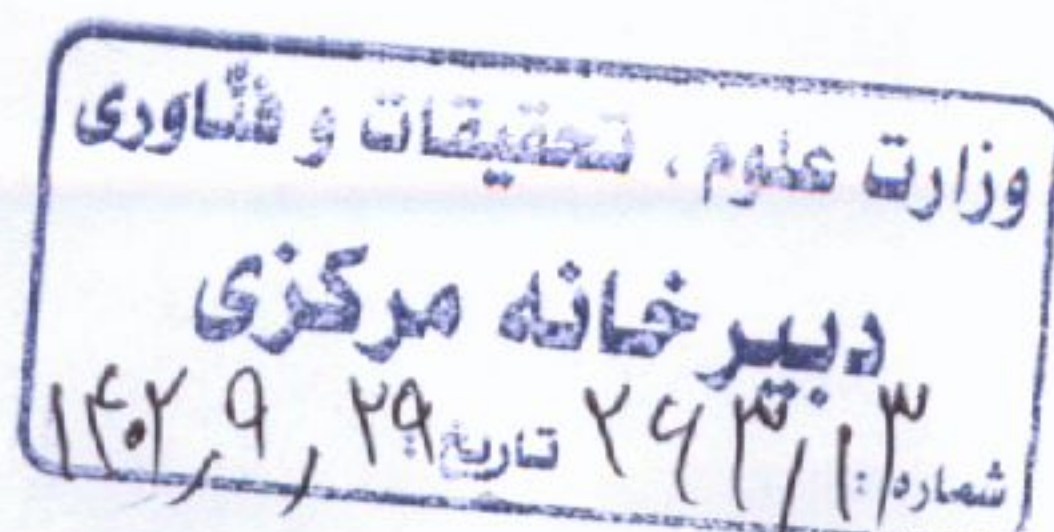 وزارت علوم ، تحقیقات و فنّاوری
دبیرخانه مرکزی
شماره: ۲۶۳/۱۳ تاریخ: ۱۴۰۲/۹/۲۹